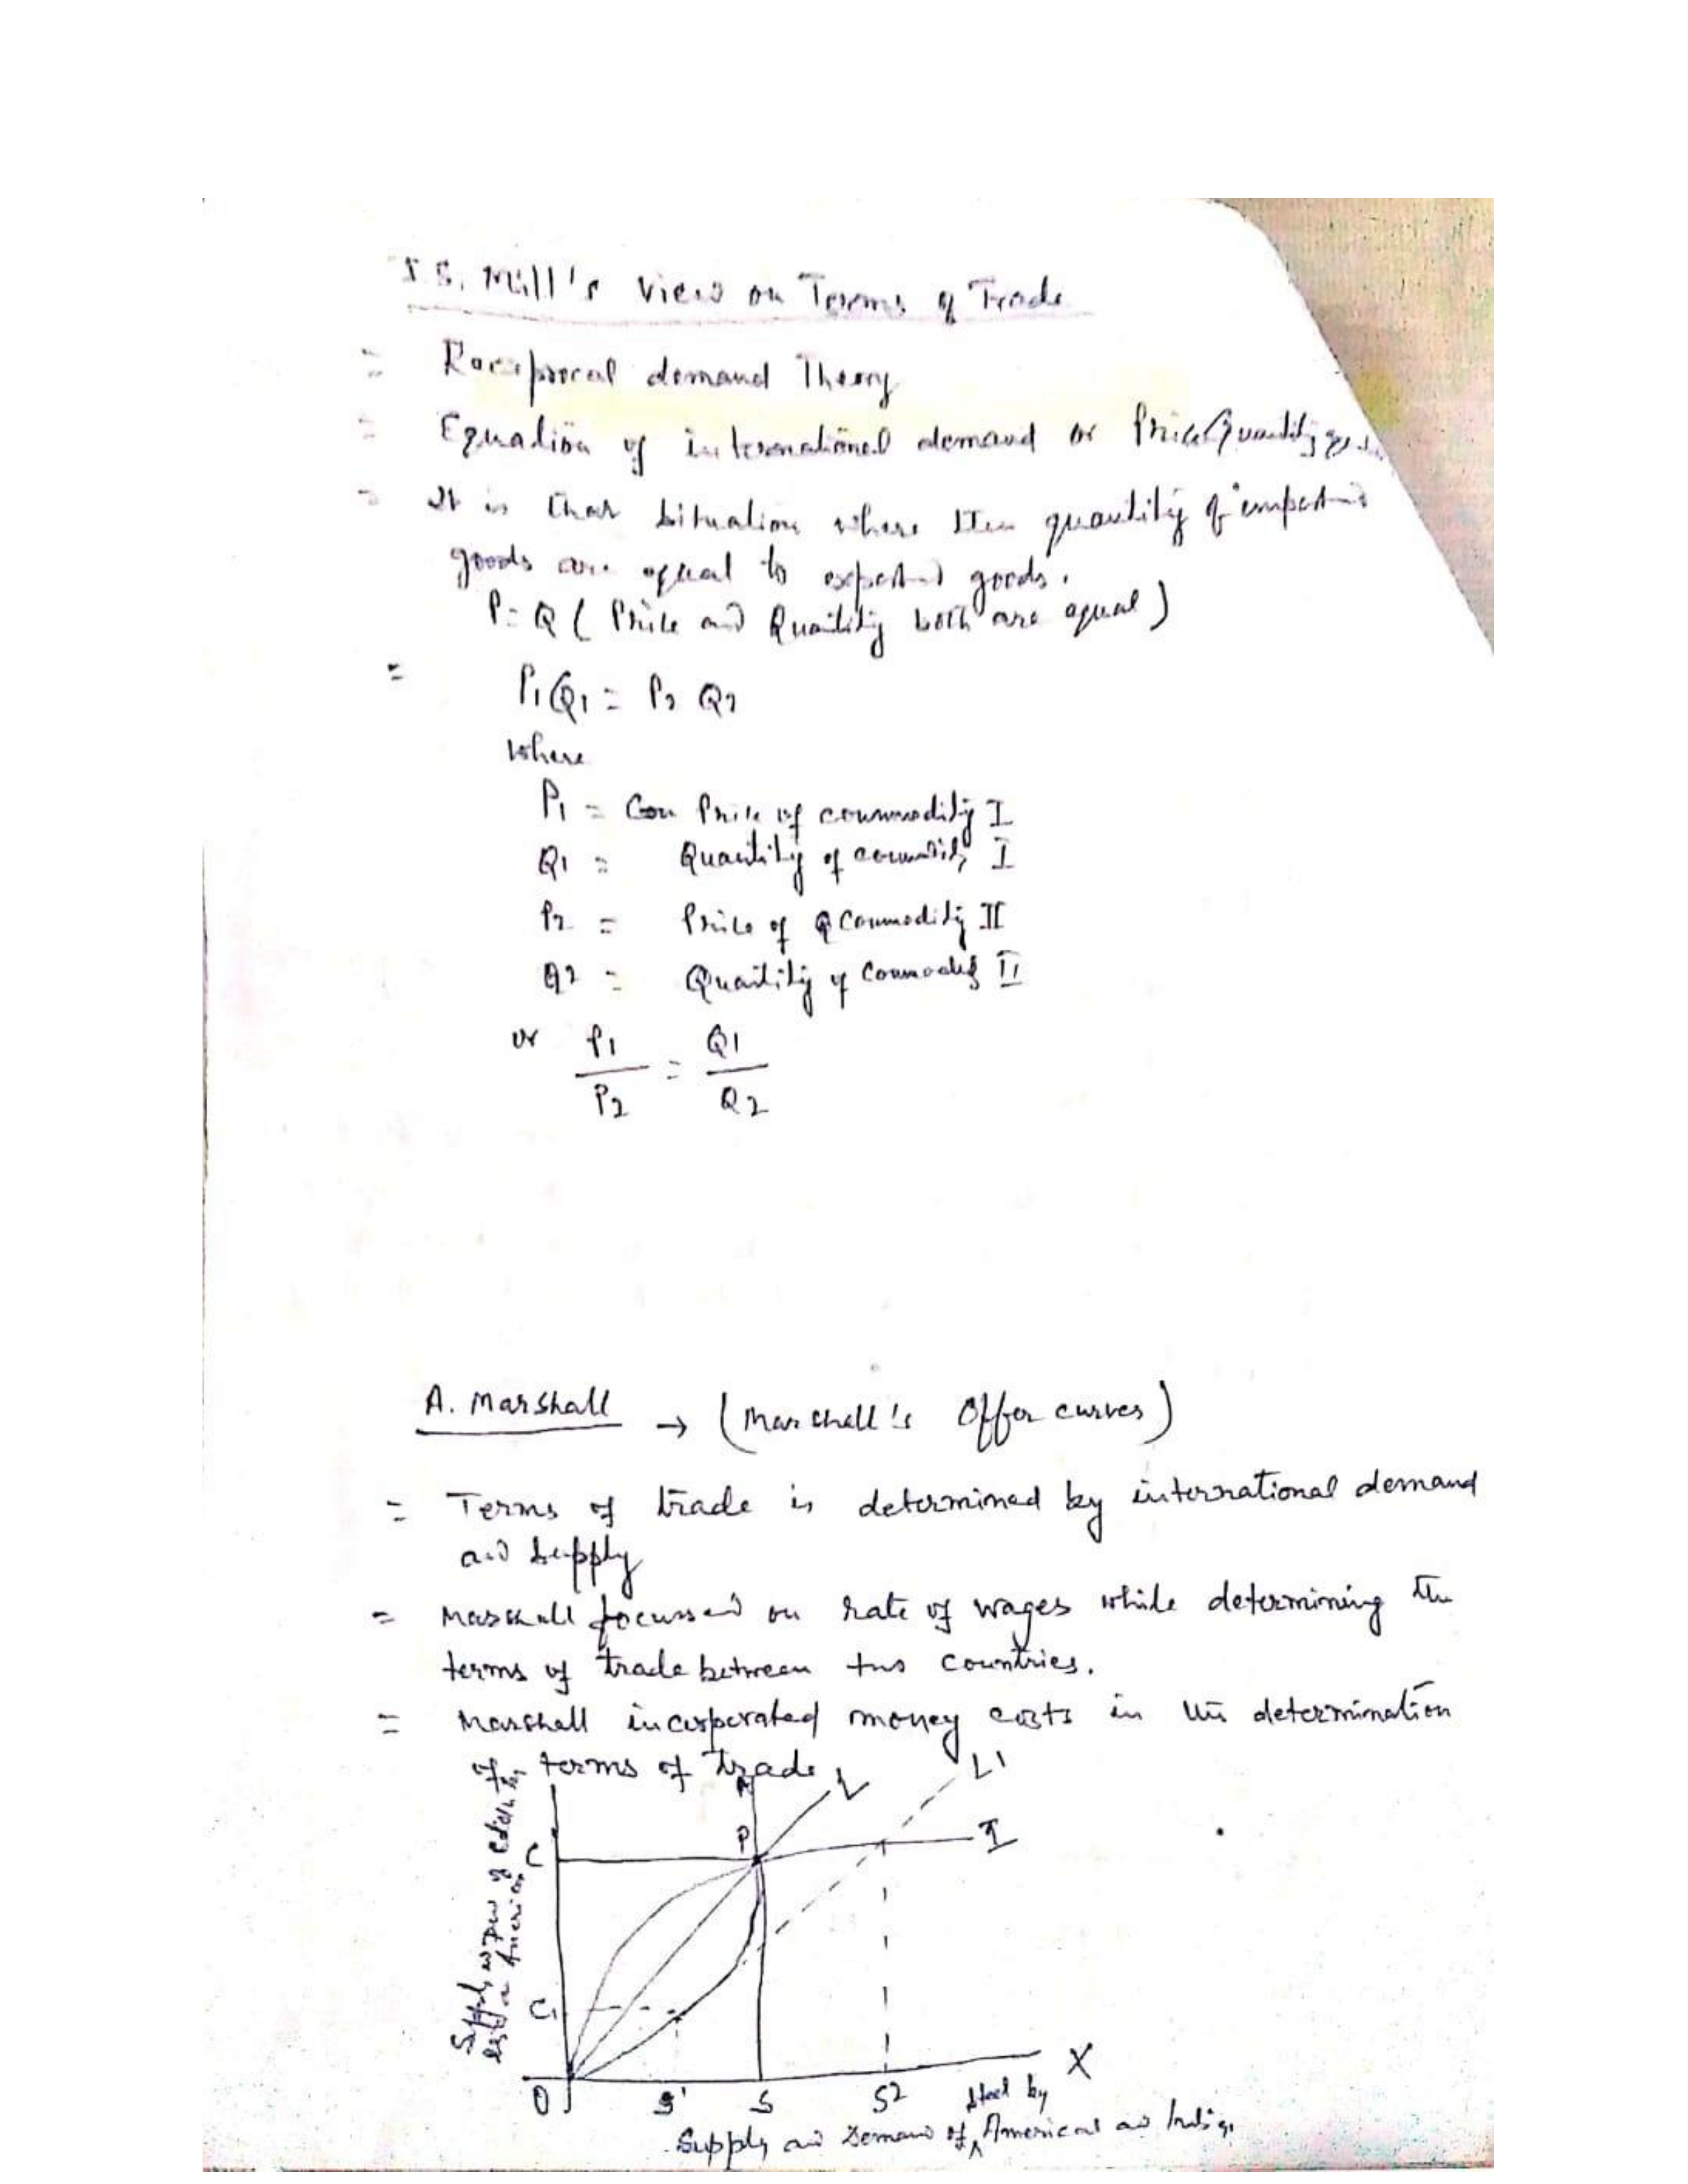 J.S. Mill's View on Terms of Trade
= Reciprocal demand Theory
= Equation of international demand or Price Quantity
= It is that situation where the quantity of imported
goods are equal to exported goods.
P = Q ( Price and Quantity both are equal )
= P1Q1 = P2 Q2
Where
P1 = Con Price of commodity I
Q1 = Quantity of commodity I
P2 = Price of Q Commodity II
Q2 = Quantity of Commodity II
or P1/P2 = Q1/Q2
A. Marshall → (Marshall's Offer curves)
= Terms of trade is determined by international demand
and supply
= Marshall focussed on rate of wages while determining the
terms of trade between two countries.
= Marshall incorporated money costs in the determination
of terms of trade
L L1
A
P I
C
C1
O S1 S S2 X
Supply and Demand of Steel by American and India